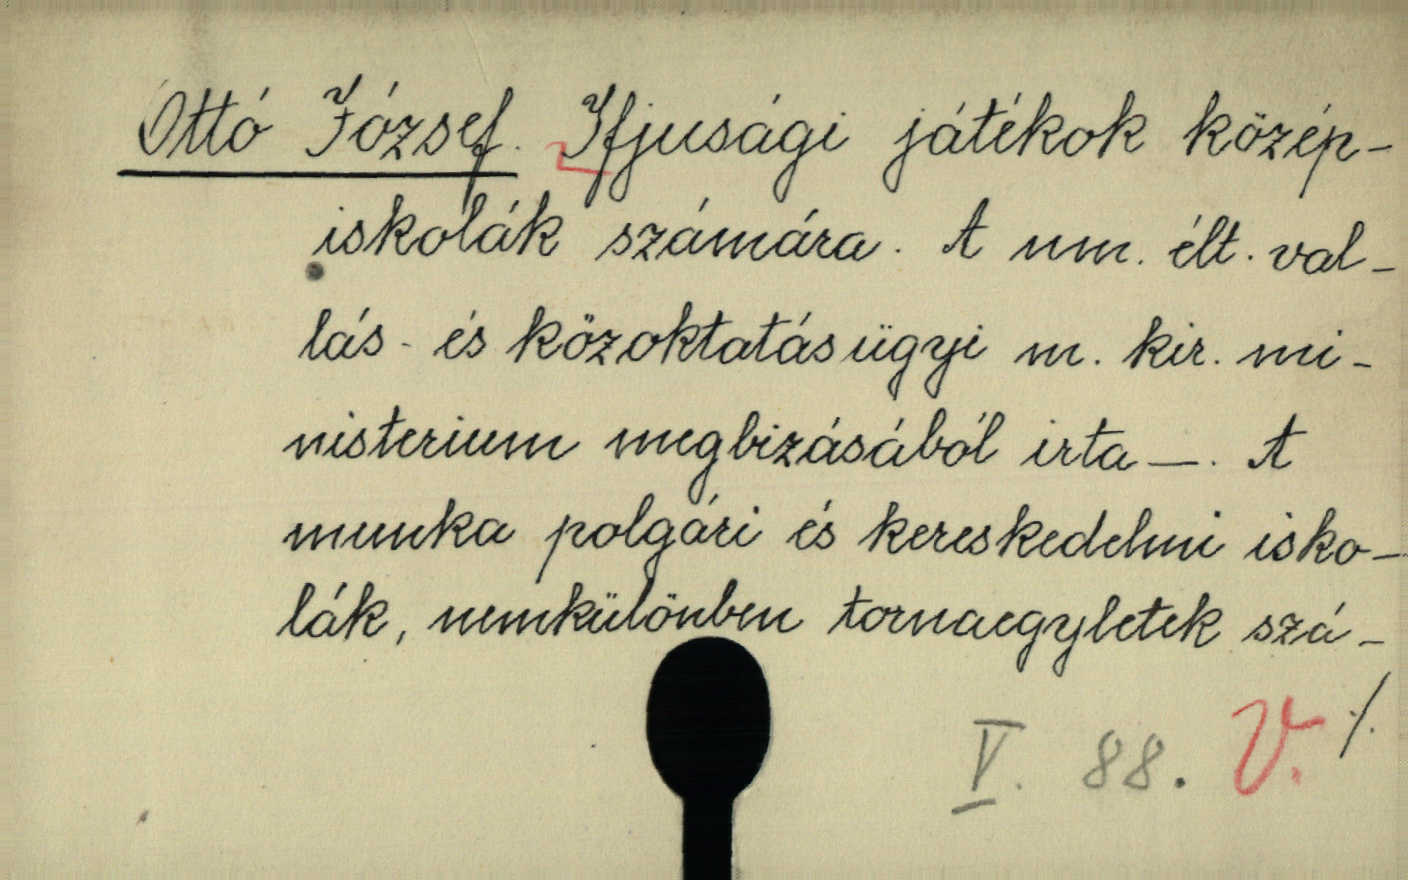 Ottó József. Ifjusági játékok közép-
iskolák számára. A nm. élt. val-
lás- és közoktatásügyi m. kir. mi-
nisterium megbizásából irta —. A
munka polgári és kereskedelmi isko-
lák, nemkülönben tornaegyletek szá-
V. 88. V. ./.